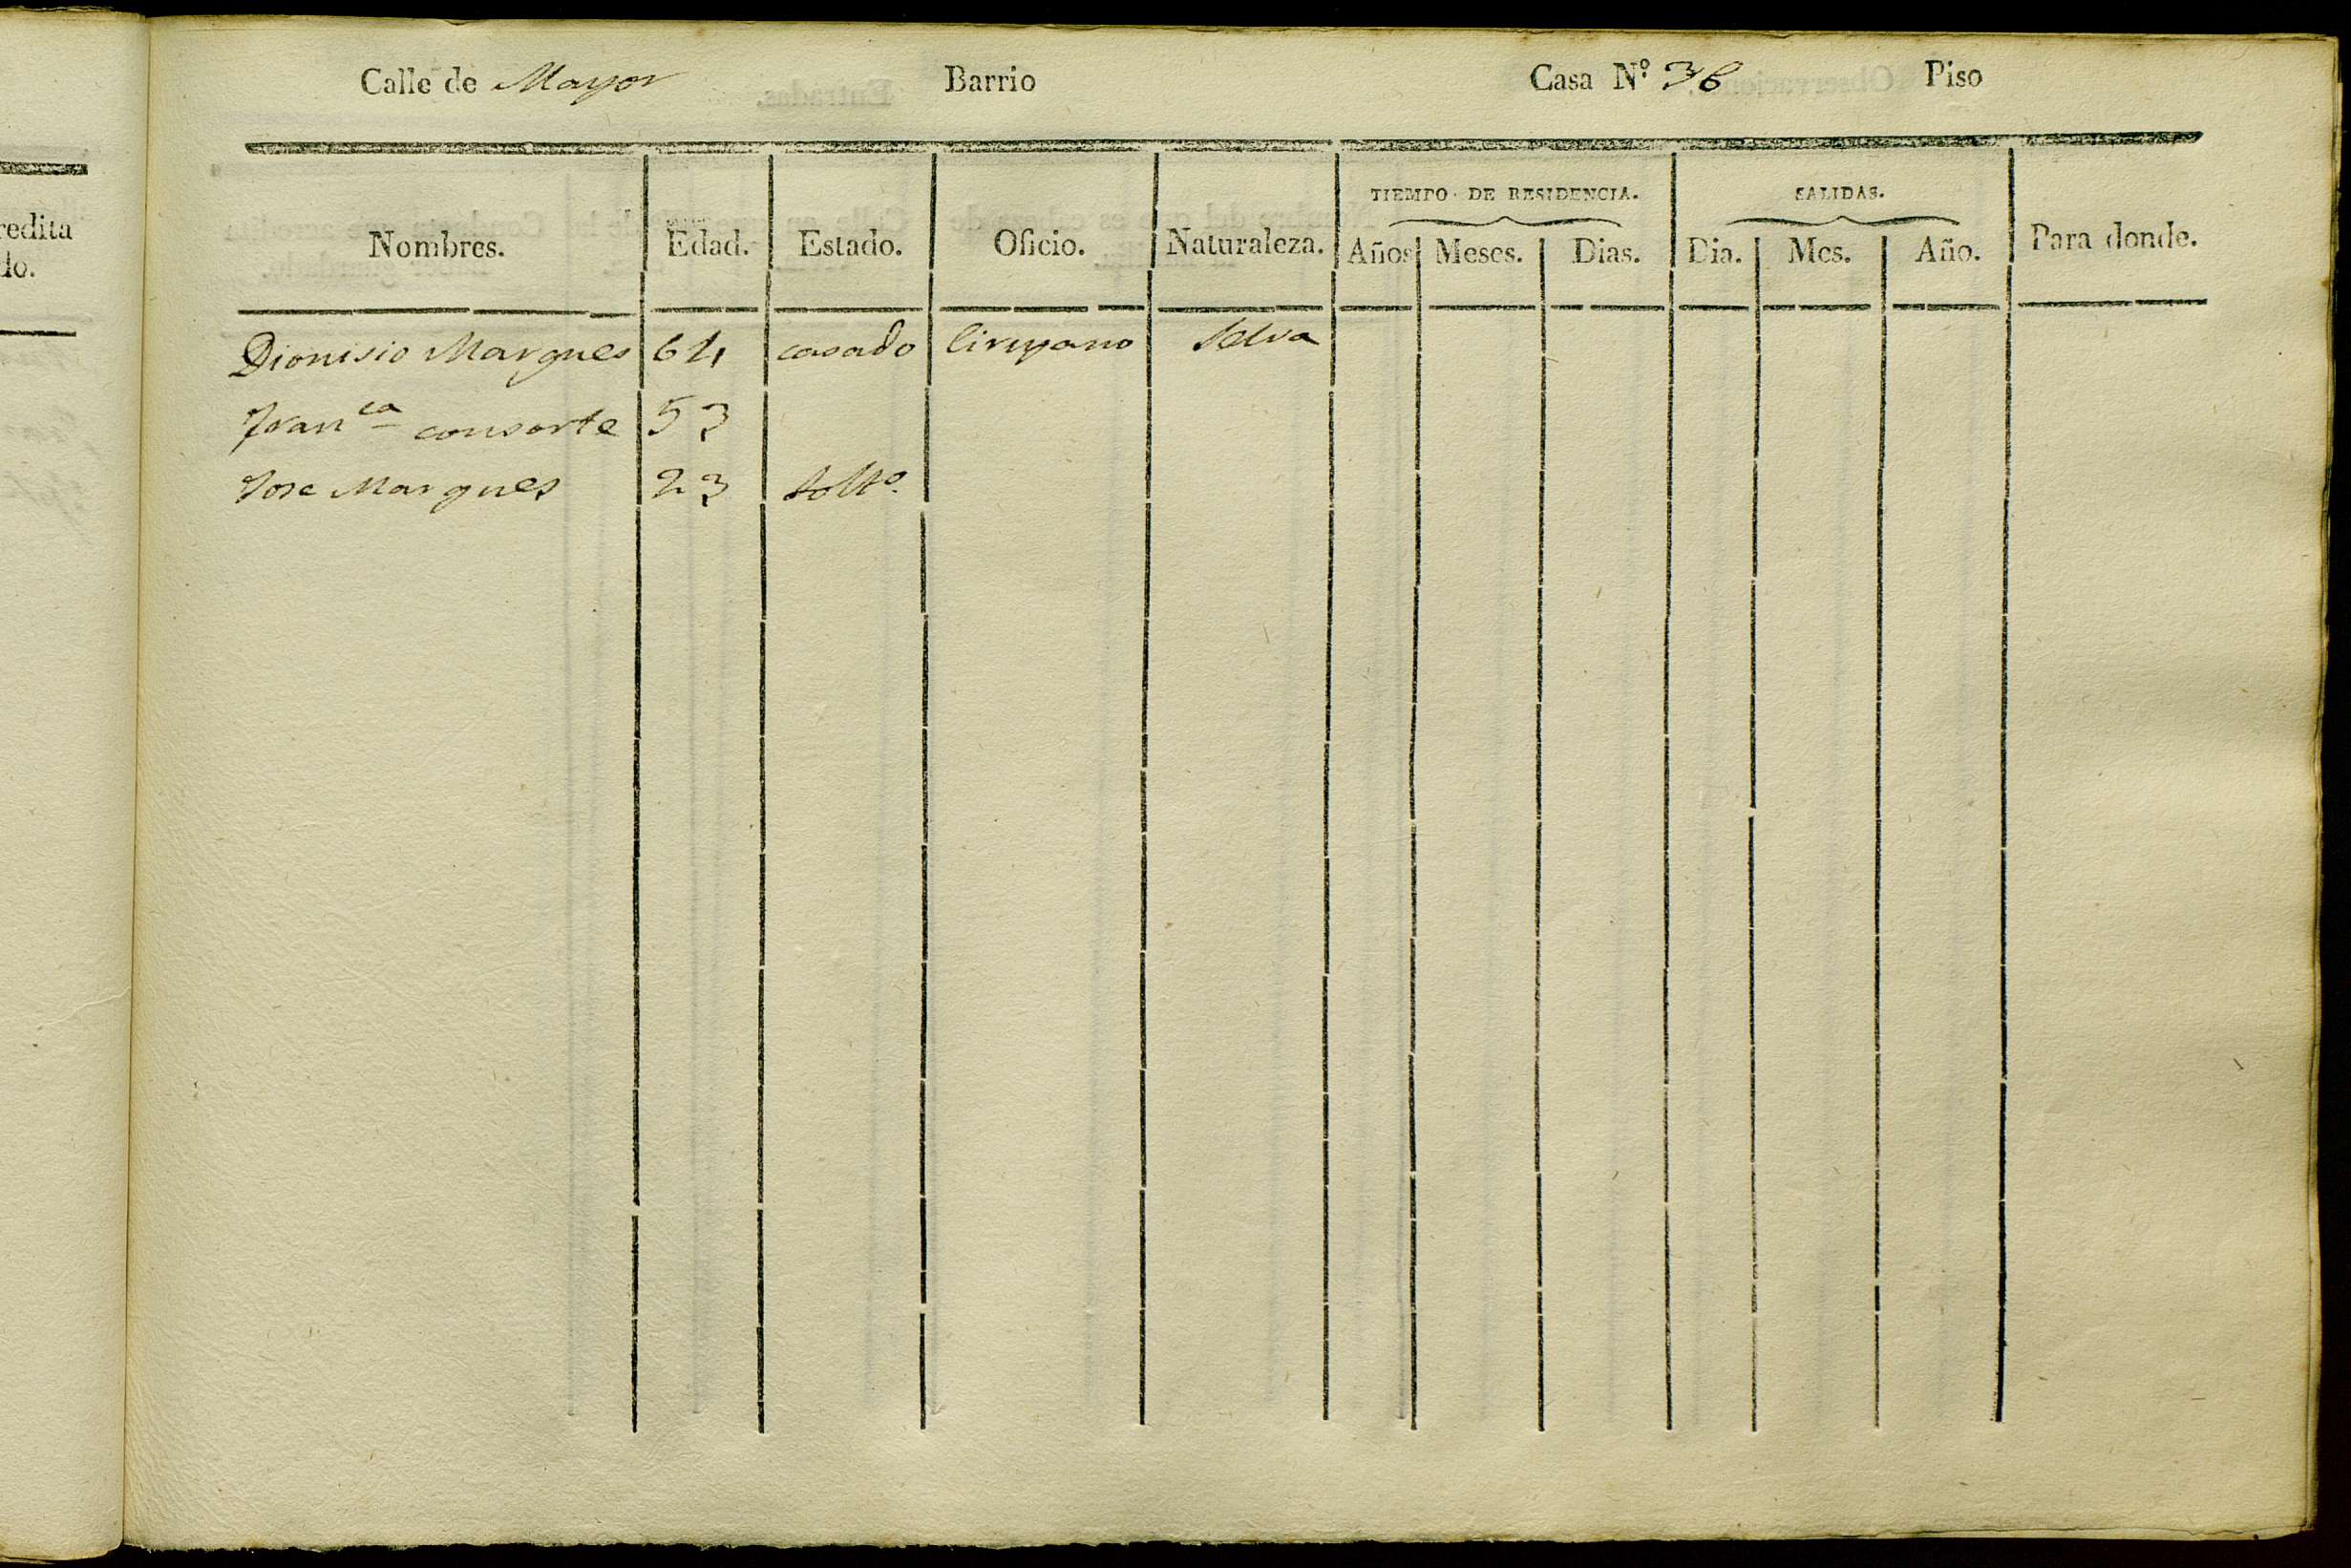 redita
do.
Calle de Mayor Barrio Casa Nº 36 Piso
TIEMPO DE RESIDENCIA. SALIDAS.
Nombres. Edad. Estado. Oficio. Naturaleza. Años Meses. Dias. Dia. Mes. Año. Para donde.
Dionisio Marques 64 casado Cirujano Selva
Franca consorte 53
Jose Marques 23 Soltº